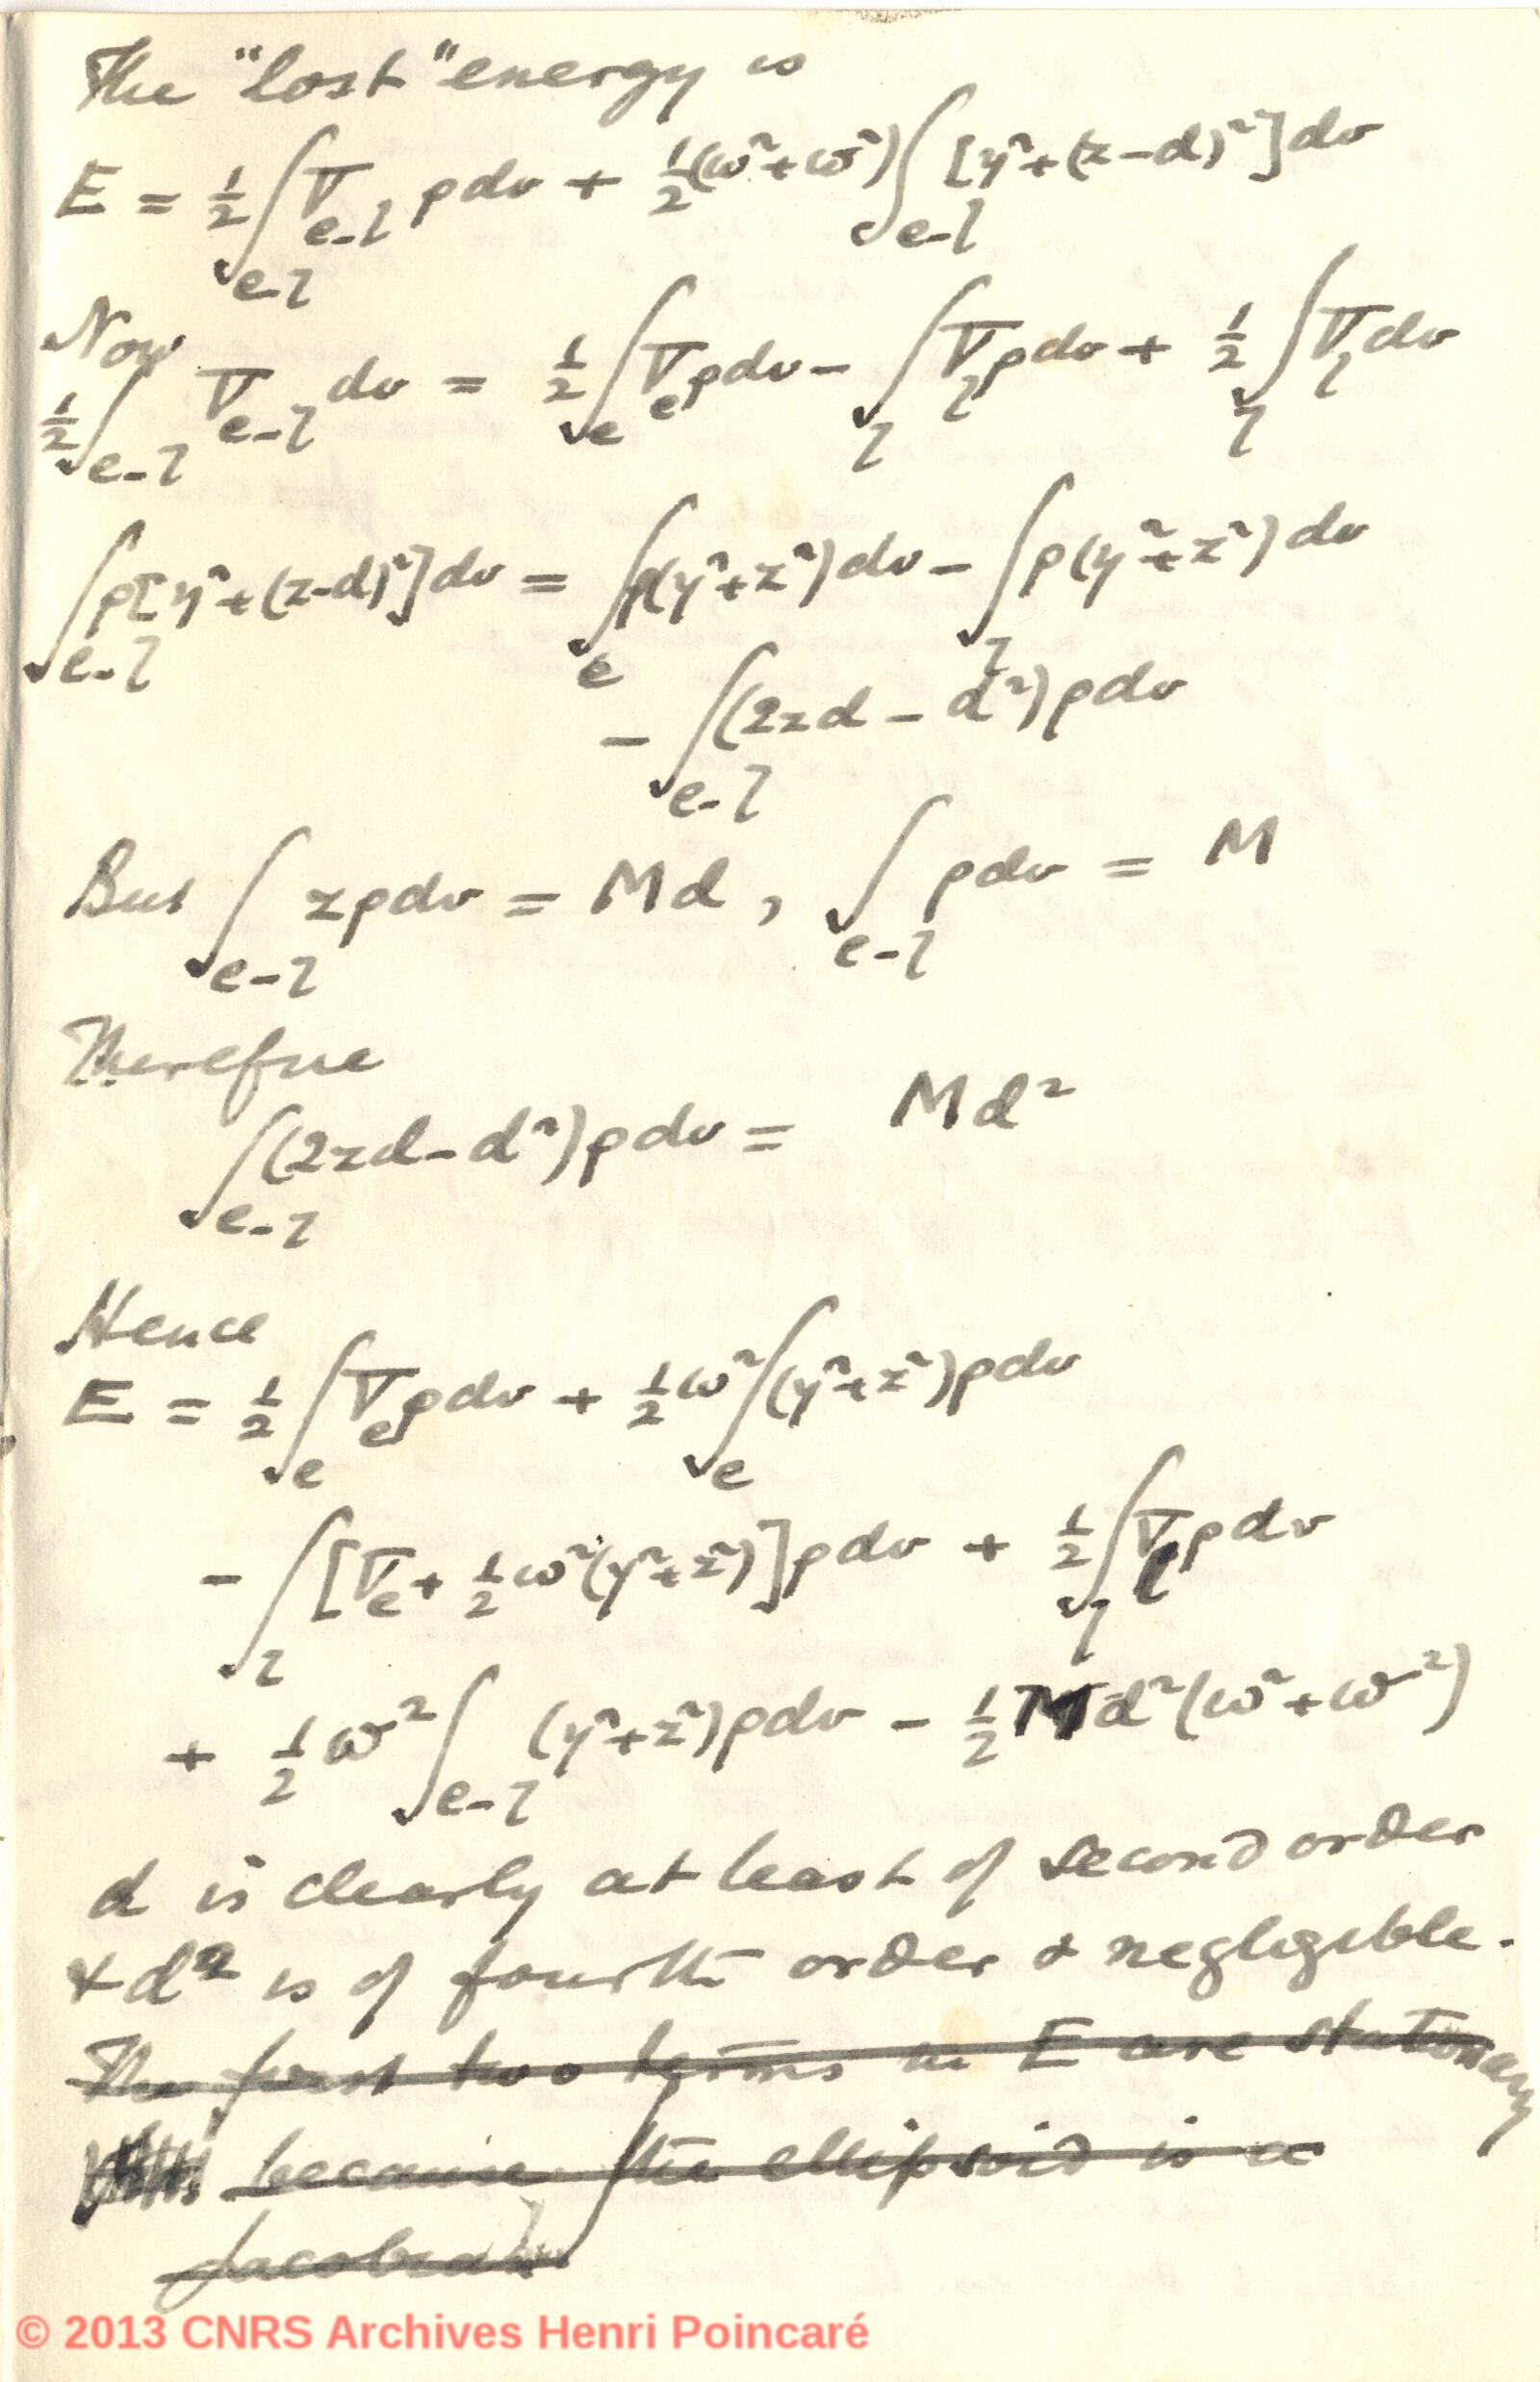 The "lost" energy is
E = ½ ∫_{e-l} V_{e-l} ρdv + ½(ω² + ϖ²) ∫_{e-l} [y² + (z-d)²]dv
Now
½ ∫_{e-l} V_{e-l} dv = ½ ∫_e V_e ρdv - ∫_l V_l ρdv + ½ ∫_l V_l dv
∫_{e-l} ρ[y² + (z-d)²]dv = ∫_e ρ(y² + z²)dv - ∫_l ρ(y² + z²)dv
- ∫_{e-l} (2zd - d²)ρdv
But ∫_{e-l} zρdv = Md, ∫_{e-l} ρdv = M
Therefore
∫_{e-l} (2zd - d²)ρdv = Md²
Hence
E = ½ ∫_e V_e ρdv + ½ω² ∫_e (y² + z²)ρdv
- ∫_l [V_e + ½ω²(y² + z²)]ρdv + ½ ∫_l V_l ρdv
+ ½ϖ² ∫_{e-l} (y² + z²)ρdv - ½Md²(ω² + ϖ²)
d is clearly at least of second order
& d² is of fourth order & negligible.
The first two terms in E are stationary
because the ellipsoid is a
Jacobian
© 2013 CNRS Archives Henri Poincaré